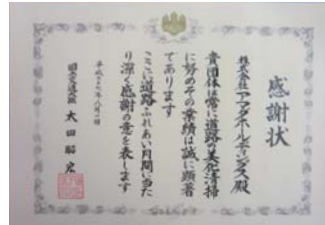 感謝状
株式会社アマダホールディングス殿
貴団体は常に道路の美化清掃
に努めその業績は誠に顕著
であります
ここに道路ふれあい月間に当た
り深く感謝の意を表します
平成二十七年八月十日
国土交通大臣 太田昭宏